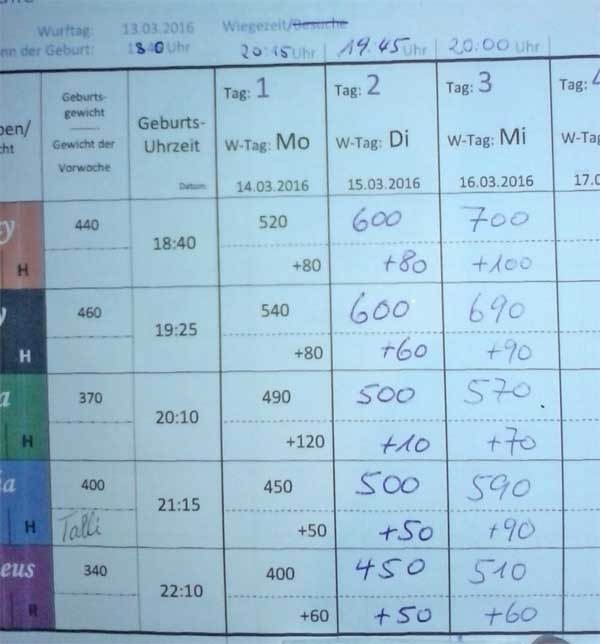 Wurftag: 13.03.2016 Wiegezeit/Besuche
der Geburt: 1840 Uhr 20:15 Uhr 19.45 Uhr 20:00 Uhr
Geburts-gewicht Geburts-Uhrzeit Tag: 1 Tag: 2 Tag: 3 Tag:
Gewicht der Vorwoche W-Tag: Mo W-Tag: Di W-Tag: Mi
Datum: 14.03.2016 15.03.2016 16.03.2016
440 18:40 520 600 700
H +80 +80 +100
460 19:25 540 600 690
H +80 +60 +90
370 20:10 490 500 570
H +120 +10 +70
400 21:15 450 500 590
H Talli +50 +50 +90
340 22:10 400 450 510
R +60 +50 +60